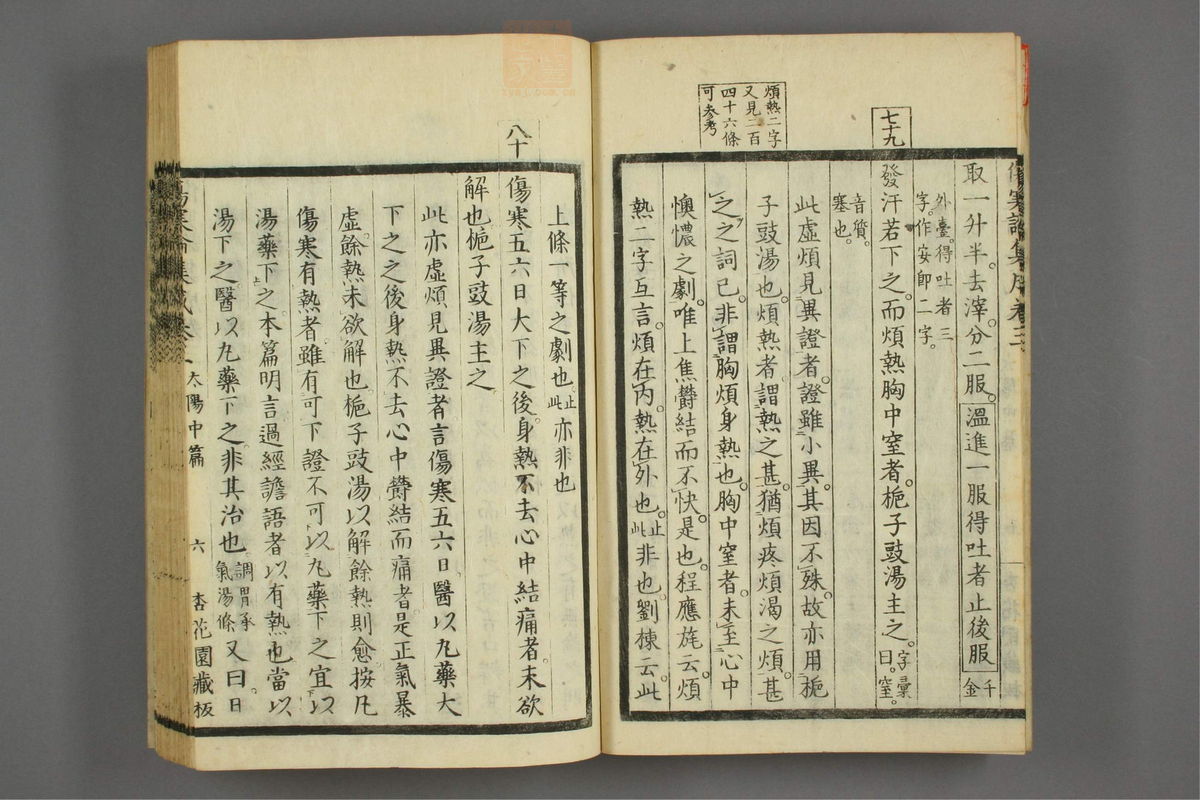 傷寒論集成卷三
取一升半。去滓。分二服。溫進一服得吐者止後服千金
外臺。得吐者三
字。作安卽二字。
七十九
發汗若下之。而煩熱胸中窒者。梔子豉湯主之。字彙曰。窒。
音質。
塞也。
煩熱二字
又見二百
四十六條
可參考
此虛煩見異證者。證雖小異。其因不殊。故亦用梔
子豉湯也。煩熱者。謂熱之甚。猶煩疼煩渴之煩。甚
之之詞已。非謂胸煩身熱也。胸中窒者。未至心中
懊憹之劇。唯上焦鬱結而不快是也。程應旄云。煩
熱二字互言。煩在內。熱在外也。止此非也。劉棟云。此
上條一等之劇也止此亦非也
八十
傷寒五六日大下之後。身熱不去。心中結痛者。未欲
解也。梔子豉湯主之
此亦虛煩見異證者。言傷寒五六日。醫以丸藥大
下之之後。身熱不去。心中鬱結而痛者。是正氣暴
虛。餘熱未欲解也。梔子豉湯以解餘熱則愈。按凡
傷寒有熱者。雖有可下證。不可以丸藥下之。宜以
湯藥下之。本篇明言過經譫語者。以有熱也。當以
湯下之。醫以丸藥下之。非其治也。調胃承氣湯條又曰。日
傷寒論集成卷 太陽中篇 六 杏花園藏板